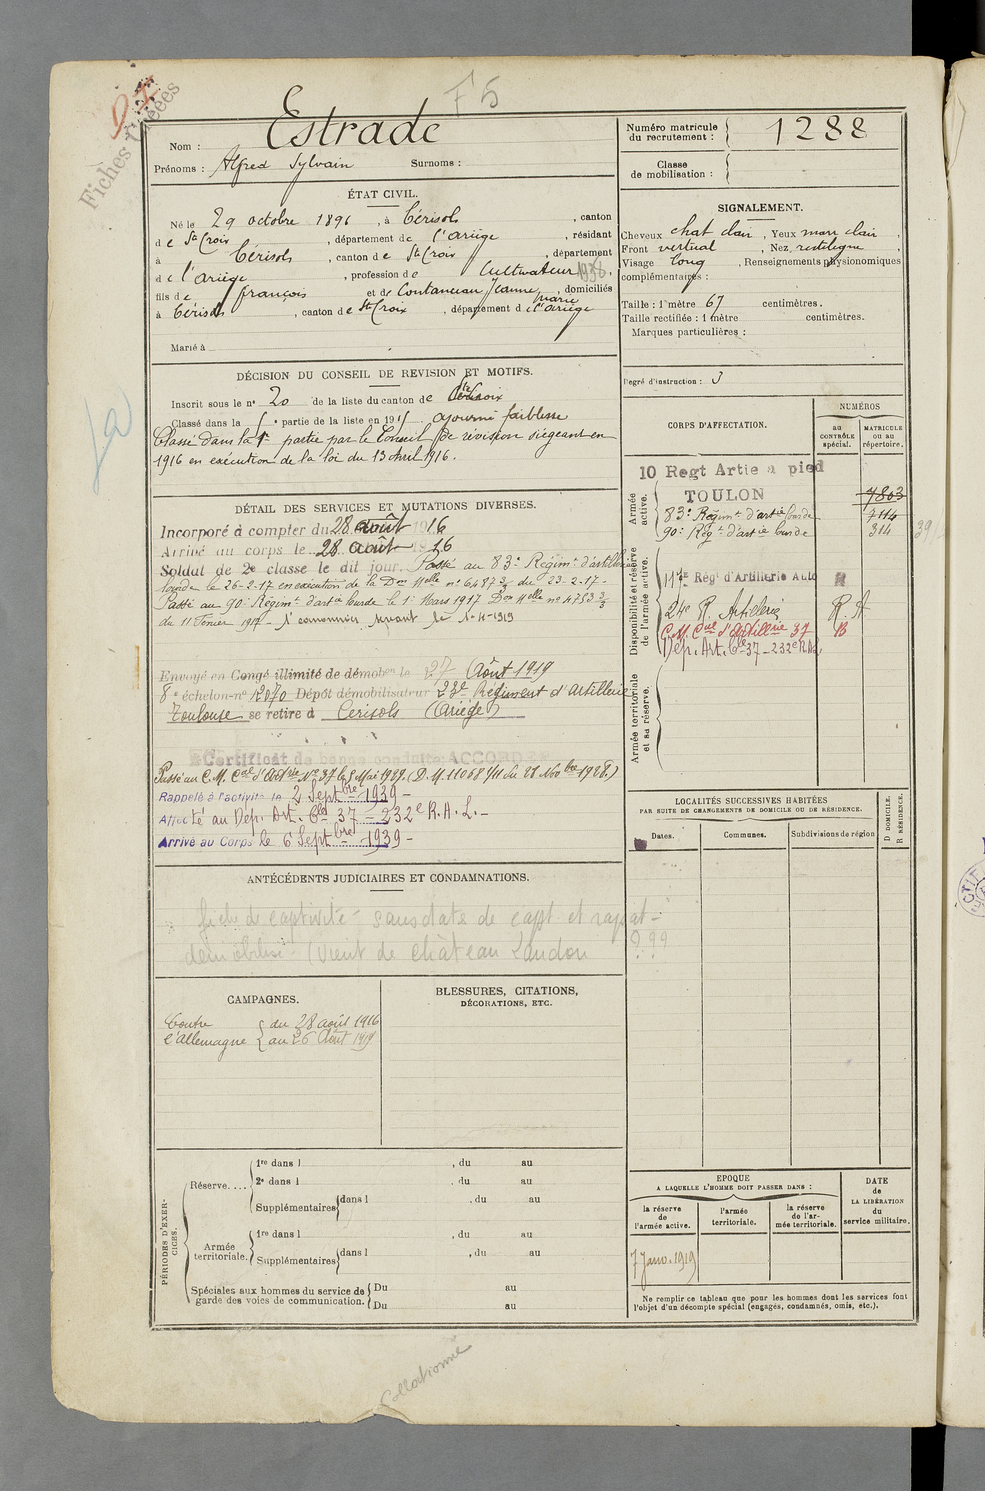 Fiches Créées
F 5
Nom : Estrade
Prénoms : Alfred Sylvain Surnoms :
Numéro matricule du recrutement : 1288
Classe de mobilisation :
ÉTAT CIVIL.
Né le 29 octobre 1896, à Cérisols, canton
de Ste Croix, département de l'Ariège, résidant
à Cérisols, canton de Ste Croix, département
de l'Ariège, profession de Cultivateur
fils de François et de Jeanne Marie, domiciliés
à Cérisols, canton de Ste Croix, département de l'Ariège
Marié à
SIGNALEMENT.
Cheveux chat clair, Yeux marr clair,
Front vertical, Nez rectiligne,
Visage long, Renseignements physionomiques
complémentaires :
Taille : 1 mètre 67 centimètres.
Taille rectifiée : 1 mètre centimètres.
Marques particulières :
Degré d'instruction : 3
DÉCISION DU CONSEIL DE REVISION ET MOTIFS.
Inscrit sous le no 20 de la liste du canton de Ste Croix
Classé dans la 5e partie de la liste en 1915 ajourné faiblesse
Classé dans la 1e partie par le Conseil de révision siégeant en
1916 en exécution de la loi du 13 Avril 1916.
DÉTAIL DES SERVICES ET MUTATIONS DIVERSES.
Incorporé à compter du 28 août 1916
Arrivé au corps le 28 août 1916
Soldat de 2e classe le dit jour. Passé au 83e Régimt d'artillerie
lourde le 26-2-17 en exécution de la Don Melle no 6487 3/3 du 23-2-17-
Passé au 90e Régimt d'artie lourde le 1er Mars 1917 Don Melle no 4753 3/3
du 11 Février 1917-
Envoyé en Congé illimité de démobon le 27 Août 1919
8e échelon-no 12070 Dépôt démobilisateur 23e Régiment d'artillerie
Toulouse se retire à Cerisols (Ariège)
Certificat de bonne conduite ACCORDÉ
Passé au C.M. Cal d'Artrie No 37 le 5 Mai 1929. (D.M. 11068 1/11 du 28 Novbre 1928.)
Rappelé à l'activité le 2 Septbre 1939-
Affecté au Dép. Art. 37 = 232e R.A.L.-
Arrivé au Corps le 6 Septbre 1939-
CORPS D'AFFECTATION.
NUMÉROS
au CONTRÔLE spécial.
MATRICULE ou au répertoire.
Armée active.
10 Regt Artie à pied
TOULON 7803
83e Régimt d'artie lourde 7114
90e Régt d'artie lourde 314
Disponibilité et réserve de l'armée active.
117e Régt d'Artillerie Auto
24e R. Artillerie R.A
C.M. Cal d'Artillerie 37 B
Dép. Art. 37-232e R.A.L.
Armée territoriale et sa réserve.
ANTÉCÉDENTS JUDICIAIRES ET CONDAMNATIONS.
fiche de captivité - sans date de capt et rapat-
démobilisé (vient de Château Landon ???
CAMPAGNES.
Contre l'Allemagne
du 28 août 1916
au 26 Août 1919
BLESSURES, CITATIONS,
DÉCORATIONS, ETC.
LOCALITÉS SUCCESSIVES HABITÉES
PAR SUITE DE CHANGEMENTS DE DOMICILE OU DE RÉSIDENCE.
Dates. Communes. Subdivisions de région
D DOMICILE.
R RÉSIDENCE.
PÉRIODES D'EXERCICES.
Réserve....
1re dans l , du au
2e dans l , du au
Supplémentaires dans l , du au
Armée territoriale.
1re dans l , du au
Supplémentaires dans l , du au
Spéciales aux hommes du service de garde des voies de communication.
Du au
Du au
EPOQUE
A LAQUELLE L'HOMME DOIT PASSER DANS :
la réserve de l'armée active.
l'armée territoriale.
la réserve de l'armée territoriale.
DATE de LA LIBÉRATION du service militaire.
7 Janv. 1919
Ne remplir ce tableau que pour les hommes dont les services font
l'objet d'un décompte spécial (engagés, condamnés, omis, etc.).
Collationné